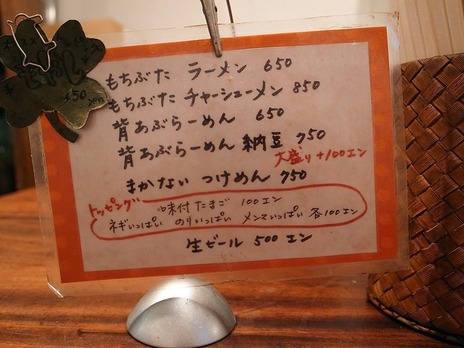 もちぶた ラーメン 650
もちぶた チャーシューメン 850
背あぶらーめん 650
背あぶらーめん 納豆 750
大盛り+100エン
まかない つけめん 750
トッピング
味付たまご 100エン
ネギいっぱい のりいっぱい メンマいっぱい 各100エン
生ビール 500エン